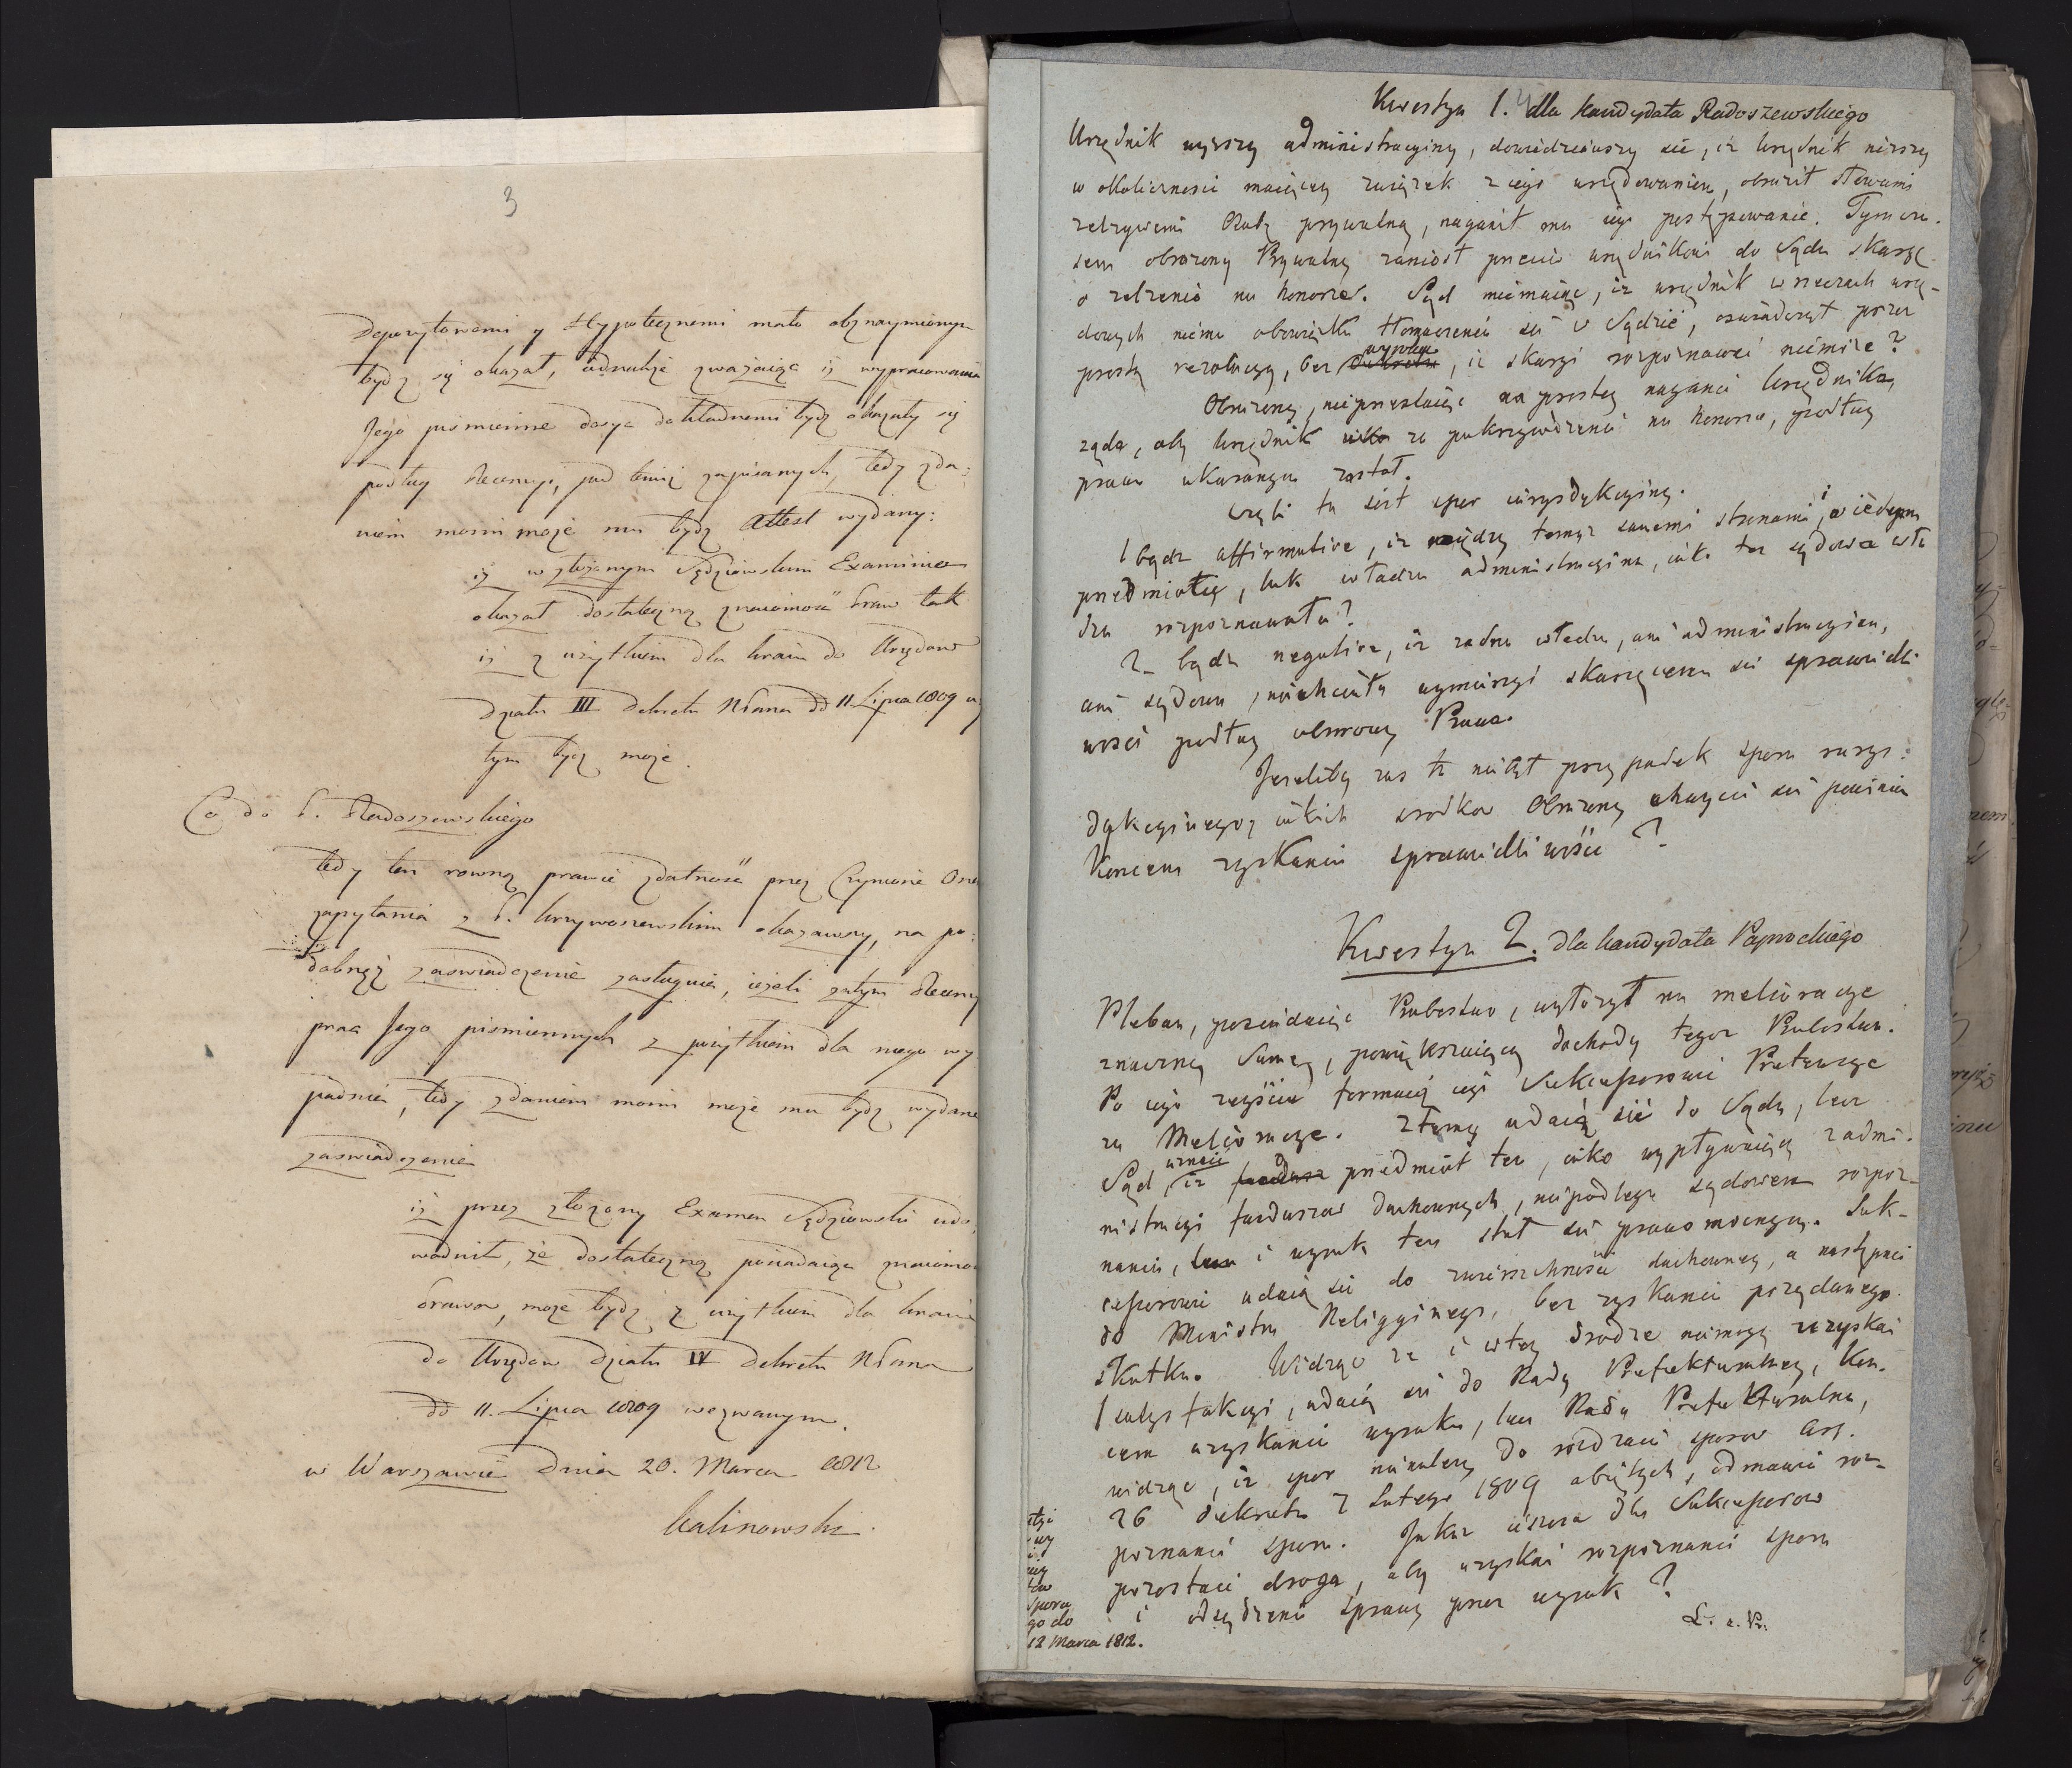 3
Depozytowemi y Hypotecznemi mało obznaymionym
bydź się okazał, iednakże zważaiąc iż wypracowania
Jego pismienne dosyć dokładnemi bydź okazały się
podług Recenzyi, pod temiż zapisanych, tedy zda:
niem moim może mu bydź Attest wydany:
iż w złożonym Sędziowskim Examinie
okazał dostateczną znaiomość Praw tak
iż z użytkiem dla kraiu do Urzędów
Działu III Dekretu NPana dd 11 Lipca 1809
tym bydź może.
Co do P. Radoszewskiego
tedy ten rowną prawie zdatność przez Czynione
zapytania z P. Krzywoszewskim okazawszy, na po:
dobnąż zaświadczenie zasługuie, ieżeli zatym Recenzy
prac Jego pismiennych z pożytkiem dla niego wy
padnie, tedy zdaniem moim może mu bydź wydane
zaswiadczenie
iż przez złożony Examen Sędziowski udo
wodnił, że dostateczną posiadaiąc znaiomo
Prawa, może bydź z użytkiem dla kraiu
do Urzędów Działu IV Dekretu NPana
dd 11. Lipca 1809 wezwanym.
w Warszawie Dnia 20. Marca 1812
Kalinowski.
Kwestya 1. dla kandydata Radoszewskiego
Urzędnik wyższy administracyiny, dowiedziawszy się, iż Urzędnik niższy
w okoliczności maiącey związek z iego urzędowaniem, obraził słowami
zelżywemi Osobę prywatną, naganił mu iego postępowanie. Tymcza-
sem obrażony Prywatny zaniosł przeciw urzędnikowi do Sądu skargę
o zelżenie na honorze. Sąd mniemaiąc, iż urzędnik w rzeczach urzę-
dowych niema obowiązku tłomaczenia się w Sądzie, oswiadczył przez
prostą rezolucyą, bez wyroku, iż skargi rozpoznawać niemoże?
Obrażony, nieprzestaiąc na prostey naganie Urzędnika,
żąda, aby Urzędnik za pokrzywdzenie na honorze, podług
prawa ukaranym został.
Czyli tu iest spor iurysdykcyiny.
1 bądz affirmative, iż między temiż samemi stronami, i w iednym
przedmiocie, tak władza administracyina, iako też sądowa wła
dza rozpoznawała?
2_ bądz negative, iż żadna władza, ani administracyina,
ani sądowa, niechciała wymierzyć skarżącemu się sprawiedli-
wości podług osnowy Prawa.
Jeżeliby zas to niebył przypadek sporu iurys:
dykcyinego, iakich srodkow Obrażony chwycić się powinien
Koncem zyskania sprawiedliwości?
Kwestya 2. dla kandydata Paprockiego
Pleban, posiadaiąc Probostwo, wyłożył na melioracye
znaczną Summę, powiększaiącą dochody tegoż Probostwa.
Po iego zeyściu formuią iego Sukcessorowie Pretensye
za Melioracye. Ztemy udaią się do Sądu, lecz
Sąd, uznaie iż przedmiot ten, iako wypływaiący z admi-
nistracyi funduszow duchownych, niepodlega sądowemu rozpoz-
naniu, i wyrok ten stał się prawomocnym. Suk-
cessorowie udaią się do zwierzchności duchowney, a następnie
do Ministra Religyinego, bez zyskania pożądanego
skutku. Widząc że i w tey drodze niemogą uzyskać
satysfakcyi, udaią się do Rady Prefekturalney, kon-
cem uzyskania wyroku, lecz Rada Prefekturalna,
widząc, iż spor nienależy do rozdzaiu sporow art.
26 dekretu 7 Lutego 1809 obiętych, odmawia roz-
poznanie sporu. Jakaż ieszcze dla Sukcessorow
pozostaie droga, aby uzyskać rozpoznanie sporu
i osądzenie sprawy przez wyrok?
Sporu
go do
12 Marca 1812.